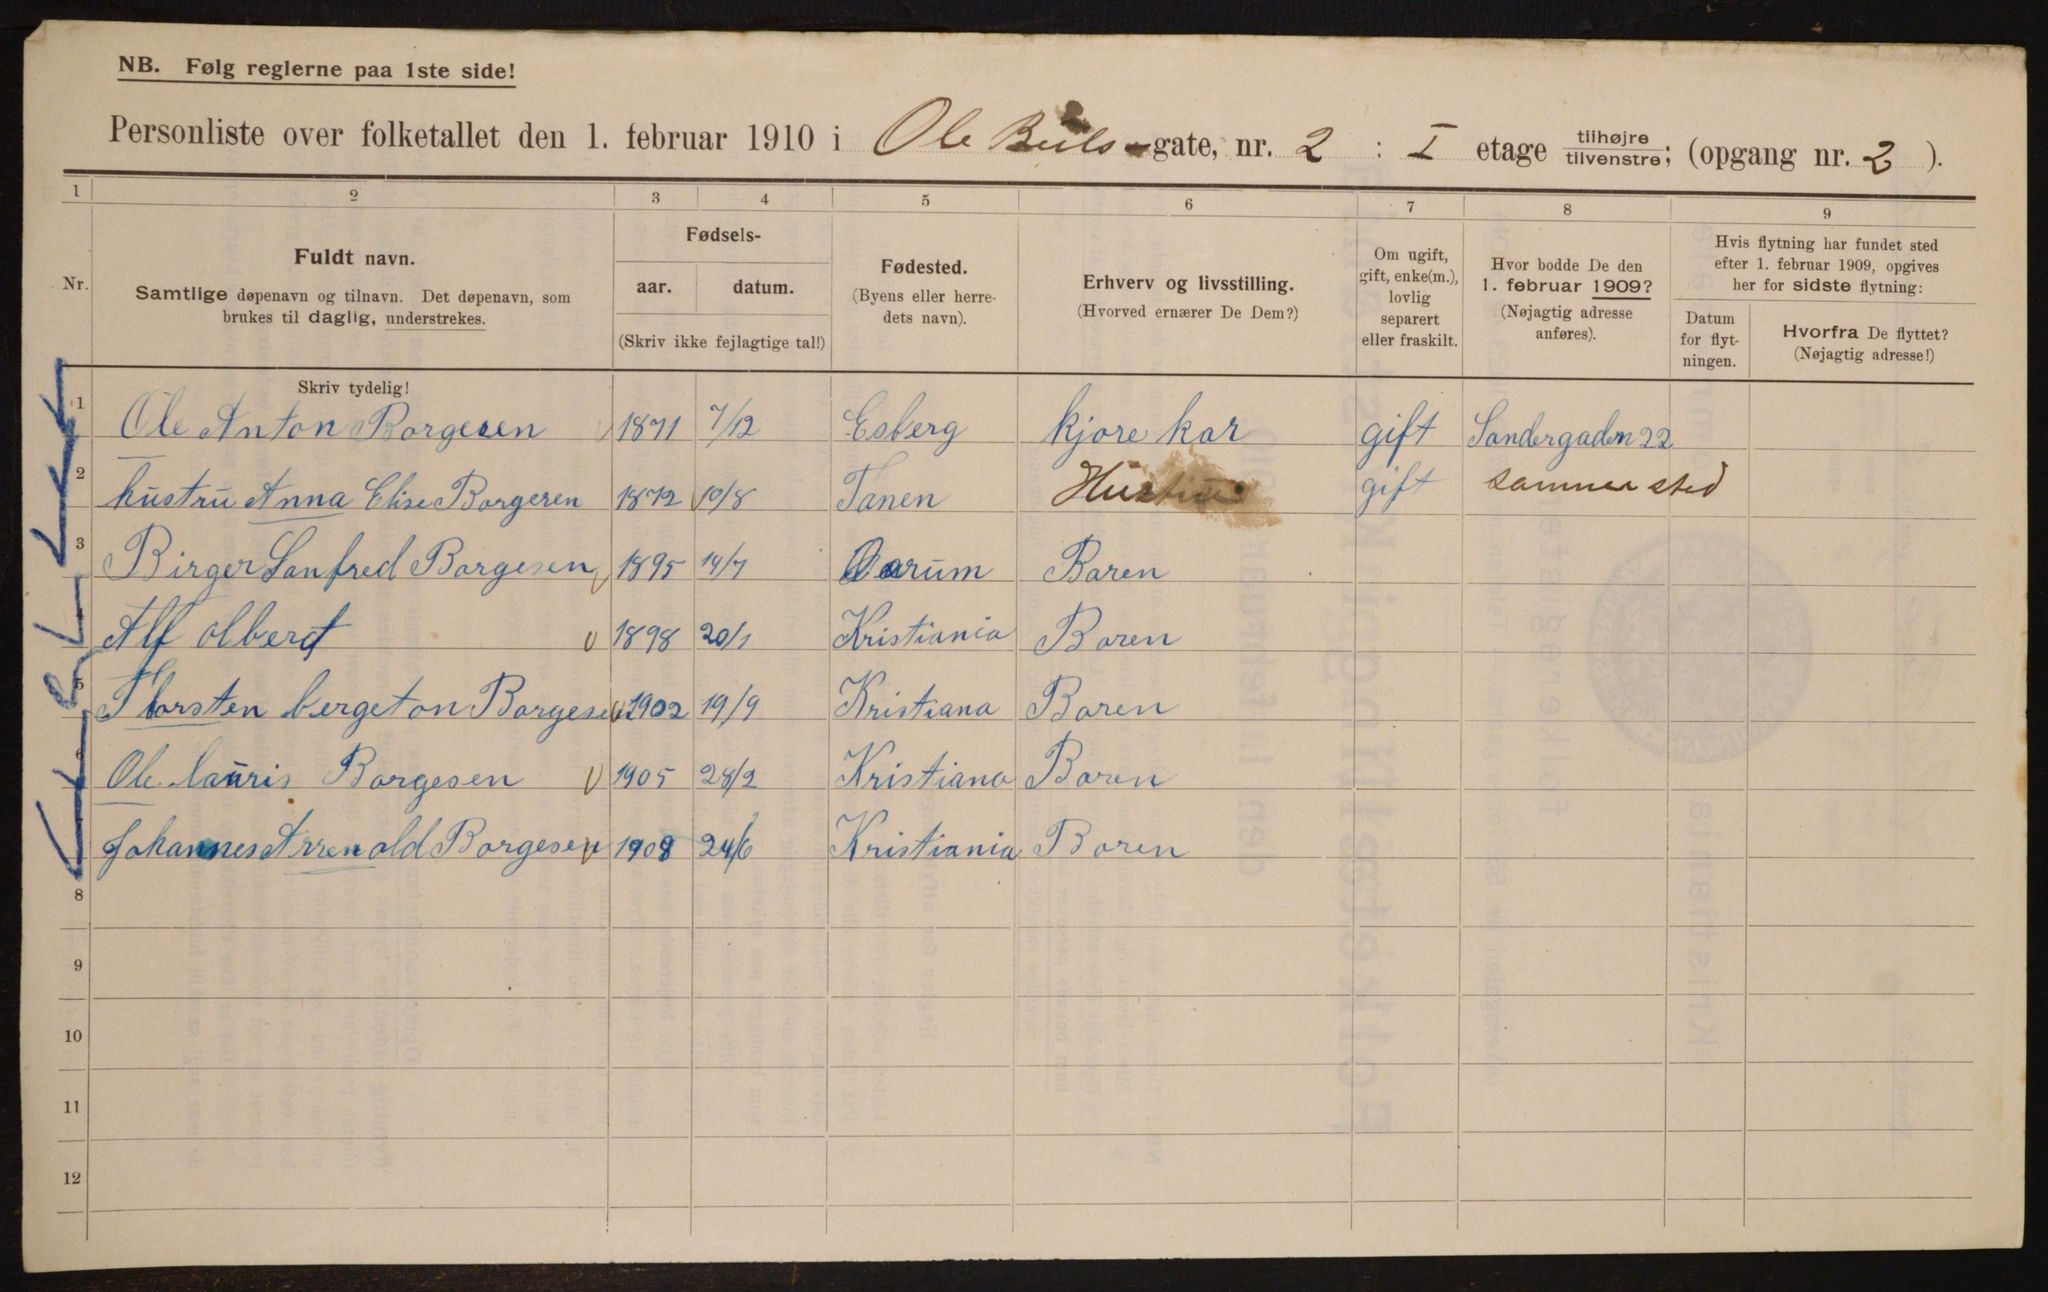 NB. Følg reglerne paa 1ste side!
Personliste over folketallet den 1. februar 1910 i Ole Buls gate, nr. 2 : I etage tilhøjre / tilvenstre; (opgang nr. 2 ).
1 2 3 4 5 6 7 8 9
Nr.
Fuldt navn.
Samtlige døpenavn og tilnavn. Det døpenavn, som
brukes til daglig, understrekes.
Skriv tydelig!
Fødsels-
aar. datum.
(Skriv ikke fejlagtige tal!)
Fødested.
(Byens eller herre-
dets navn).
Erhverv og livsstilling.
(Hvorved ernærer De Dem?)
Om ugift,
gift, enke(m.),
lovlig
separert
eller fraskilt.
Hvor bodde De den
1. februar 1909?
(Nøjagtig adresse
anføres).
Hvis flytning har fundet sted
efter 1. februar 1909, opgives
her for sidste flytning:
Datum
for flyt-
ningen.
Hvorfra De flyttet?
(Nøjagtig adresse!)
1 Ole Anton Borgesen 1871 7/12 Esberg kjore kar gift Sandergaden 22
2 hustru Anna Elise Borgeren 1872 10/8 Tanen Hustru gift samme sted
3 Birger Sanfred Borgesen 1895 14/7 Oarum Baren
4 Alf olbert 1898 20/1 Kristiania Boren
5 Thorsten bergeton Borgesen 1902 19/9 Kristiana Boren
6 Ole lauris Borgesen 1905 28/2 Kristiana Boren
Johannes Arrenold Borgesen 1908 24/6 Kristiania Boren
8
9
10
11
12